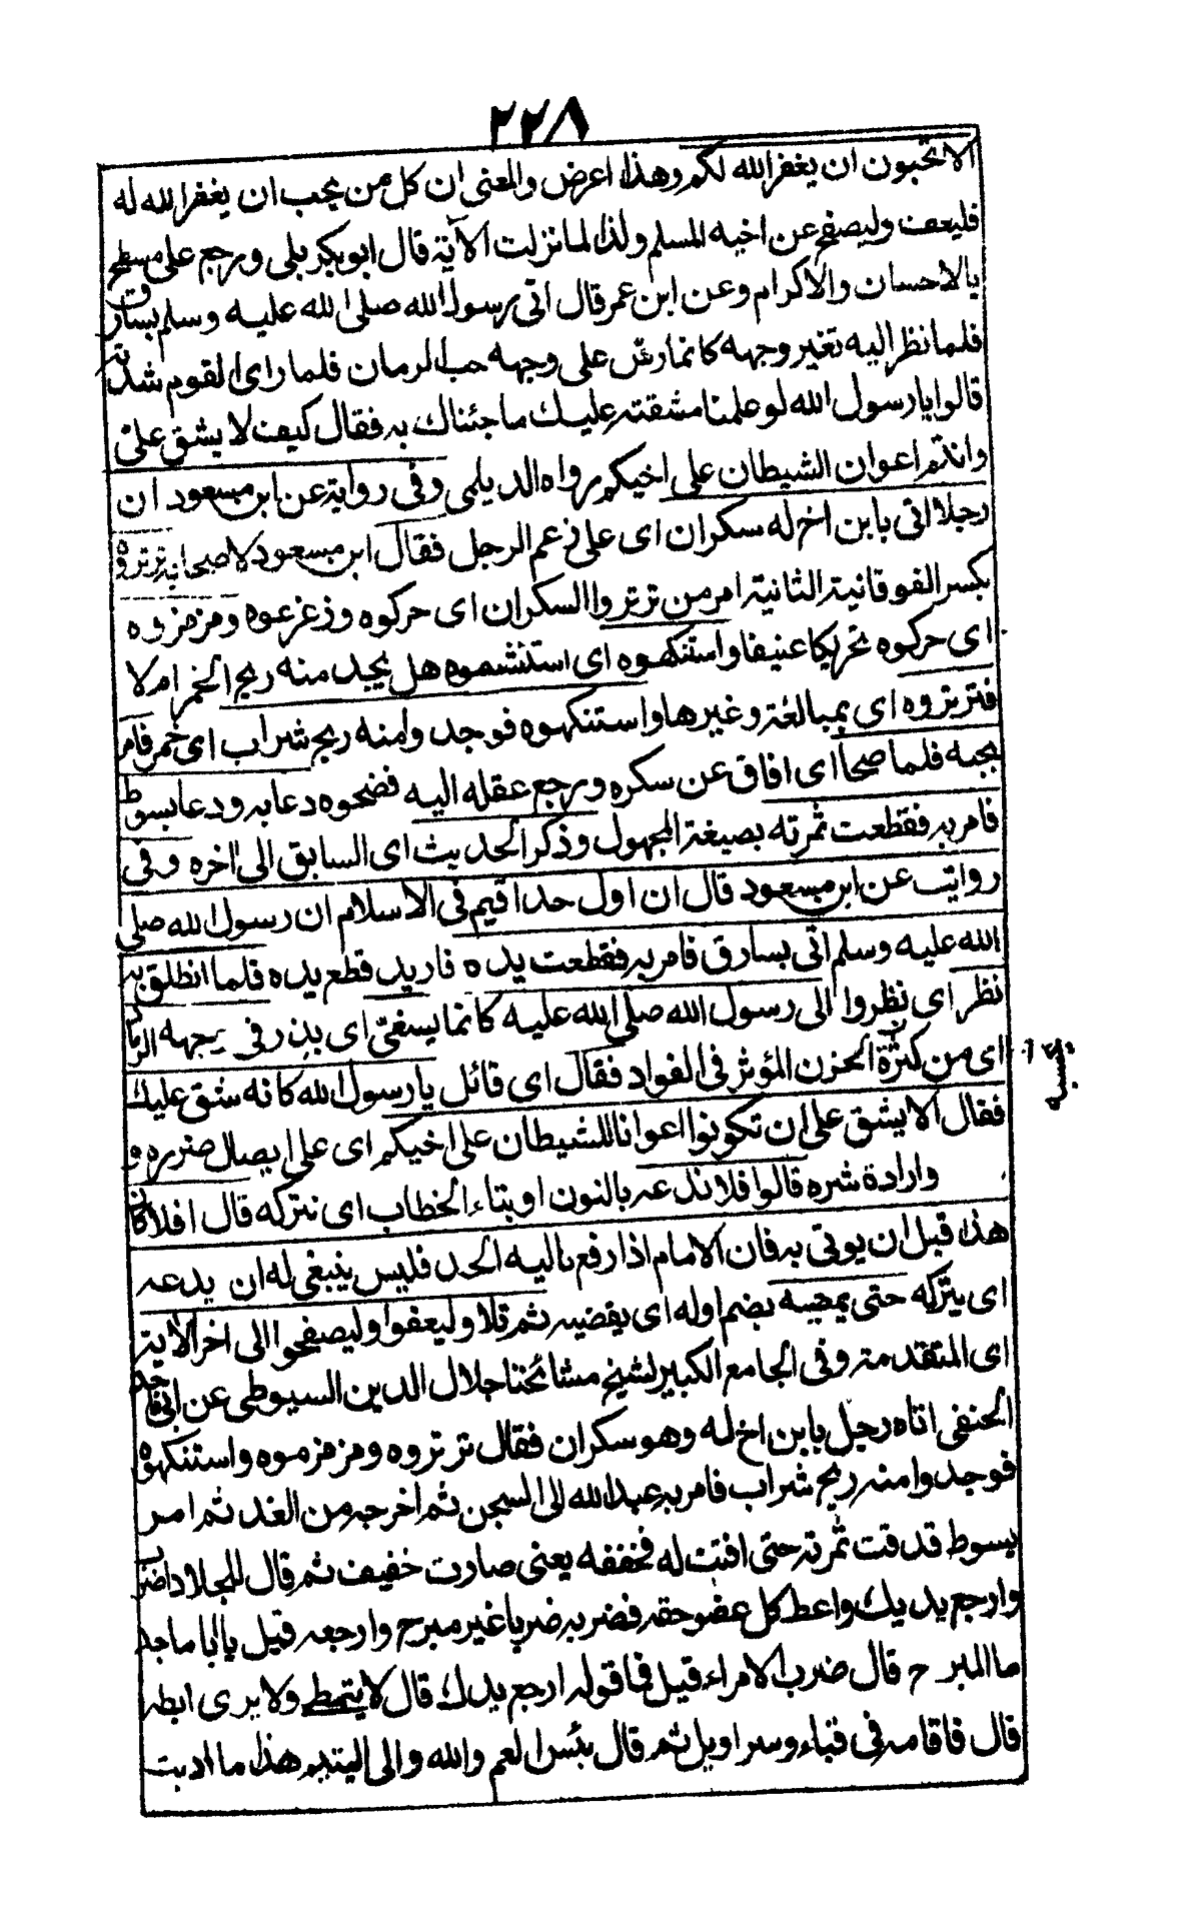 ٢٢٨
الا تحبون ان يغفر الله لكم وهذا اعرض والمعنى ان كل من يحب ان يغفر الله له
فليعف وليصفح عن اخيه المسلم ولذا لما نزلت الآية قال ابو بكر بلى ورجع على مسطح
بالاحسان والاكرام وعن ابن عمر قال اتى رسول الله صلى الله عليه وسلم بسارق
فلما نظر اليه تغير وجهه كانما رش على وجهه حب الرمان فلما راى القوم شدته
قالوا يا رسول الله لو علمنا مشقته عليك ما جئناك به فقال كيف لا يشق على
وانتم اعوان الشيطان على اخيكم رواه الديلمى وفى رواية عن ابن مسعود ان
رجلا اتى بابن اخ له سكران اى على زعم الرجل فقال ابن مسعود لاصحابه ترتروه
بكسر الفوقانية الثانية امر من ترتروا السكران اى حركوه وزعزعوه ومزمزوه
اى حركوه تحريكا عنيفا واستنكهوه اى استنشموه هل يجد منه ريح الخمر ام لا
فترتروه اى بمبالغة وغيرها واستنكهوه فوجدوا منه ريح شراب اى خمر فامر
بحبه فلما صحا اى افاق عن سكره ورجع عقله اليه فضحوه دعا به ودعا بسوط
فامر به فقطعت ثمرته بصيغة المجهول وذكر الحديث اى السابق الى اخره وفى
رواية عن ابن مسعود قال ان اول حد اقيم فى الاسلام ان رسول الله صلى
الله عليه وسلم اتى بسارق فامر به فقطعت يده فاريد قطع يده فلما انطلق به
نظر اى نظروا الى رسول الله صلى الله عليه كانما يسفى اى يذر فى وجهه الرماد
اى من كثرة الحزن المؤثر فى الفواد فقال اى قائل يا رسول الله كانه شق عليك
فقال الا يشق على ان تكونوا اعوانا للشيطان على اخيكم اى على ايصال ضرره و
وارادة شره قالوا فلا ندعه بالنون او بتاء الخطاب اى نتركه قال افلا كان
هذا قبل ان يوتى به فان الامام اذا رفع اليه الحد فليس ينبغى له ان يدعه
اى يتركه حتى يمضيه بضم اوله اى يقضيه ثم تلا وليعفوا وليصفحوا الى اخر الآية
اى المتقدمة وفى الجامع الكبير لشيخ مشائخنا جلال الدين السيوطى عن ابى ماجد
الحنفى اتاه رجل بابن اخ له وهو سكران فقال ترتروه ومزمزوه واستنكهوه
فوجدوا منه ريح شراب فامر به عبد الله الى السجن ثم اخرجه من الغد ثم امر
بسوط قدقت ثمرته حتى افتت له مخففه يعنى صارت خفيف ثم قال للجلاد اضرب
وارجع يديك واعط كل عضو حقه فضربه ضربا غير مبرح وارجعه قيل يا ابا ماجد
ما المبرح قال ضرب الامراء قيل فما قوله ارجع يدك قال لا يتمطى ولا يرى ابطه
قال فاقامه فى قباء وسراويل ثم قال بئس العم والله والى اليتيم هذا ما ادبت